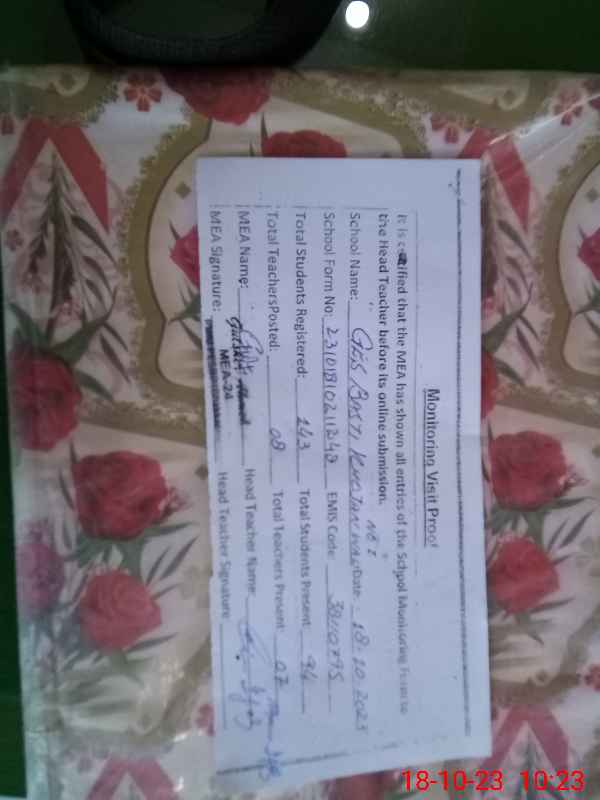 Monitoring Visit Proof
It is certified that the MEA has shown all entries of the School Monitoring Form to
the Head Teacher before its online submission.
School Name: GES BASTI Date: 18-10-2023
No 2
School Form No: EMIS Code: 38110795
Total Students Registered: 143 Total Students Present: 94
Total TeachersPosted: 08 Total Teachers Present: 07
MEA Name: Head Teacher Name:
MEA Signature: MEA-24 Head Teacher Signature
18-10-23 10:23